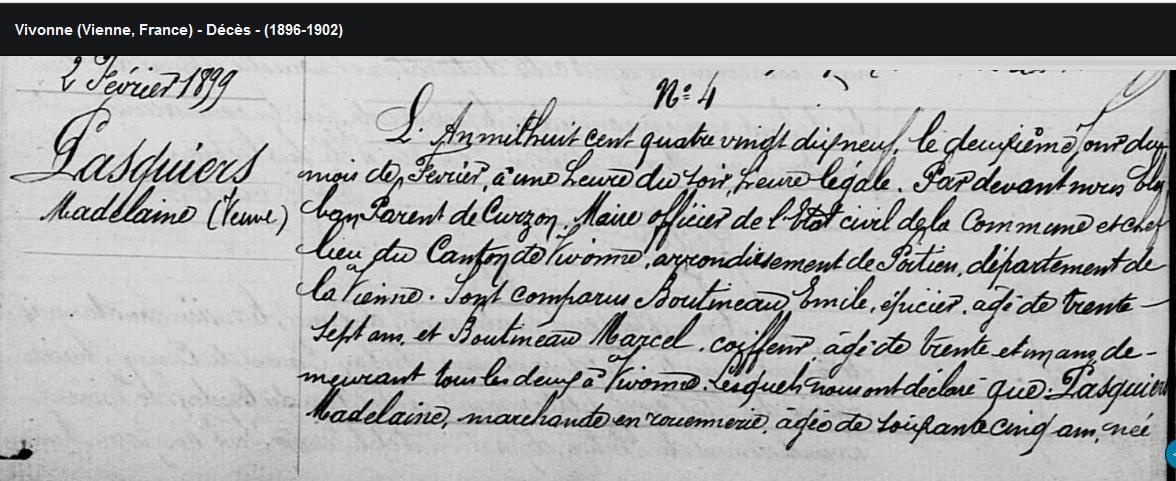 Vivonne (Vienne, France) - Décès - (1896-1902)
2 Février 1899
Pasquiers
Madelaine (Veuve)
N° 4
L'An mil huit cent quatre vingt dix neuf, le deuxième jour du
mois de Février, à une heure du soir, heure légale. Par devant nous
Parent de Curzon, Maire officier de l'Etat civil de la Commune et chef
lieu du Canton de Vivonne, arrondissement de Poitiers, département de
la Vienne. Sont comparus Boutineau Emile, épicier, âgé de trente
sept ans, et Boutineau Marcel, coiffeur, âgé de trente et un ans, de-
meurant tous les deux à Vivonne, lesquels nous ont déclaré que Pasquiers
Madelaine, marchande en rouennerie, âgée de soixante cinq ans, née